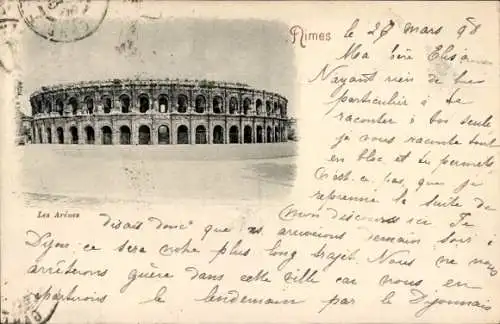 Nimes
le 27 mars 98
Ma chère Elisa
N'ayant rien de bien
particulier à te
raconter à toi seule
je vous raconte tout
en bloc et tu permets
n'est-ce pas, que je
reprenne la suite de
mon discours ici. Je
Les Arènes
disais donc que nous arriverons demain soir à
Dijon ce sera notre plus long trajet. Nous ne nous
arrêterons guère dans cette ville car nous en
repartirons le lendemain par le Dijonnais